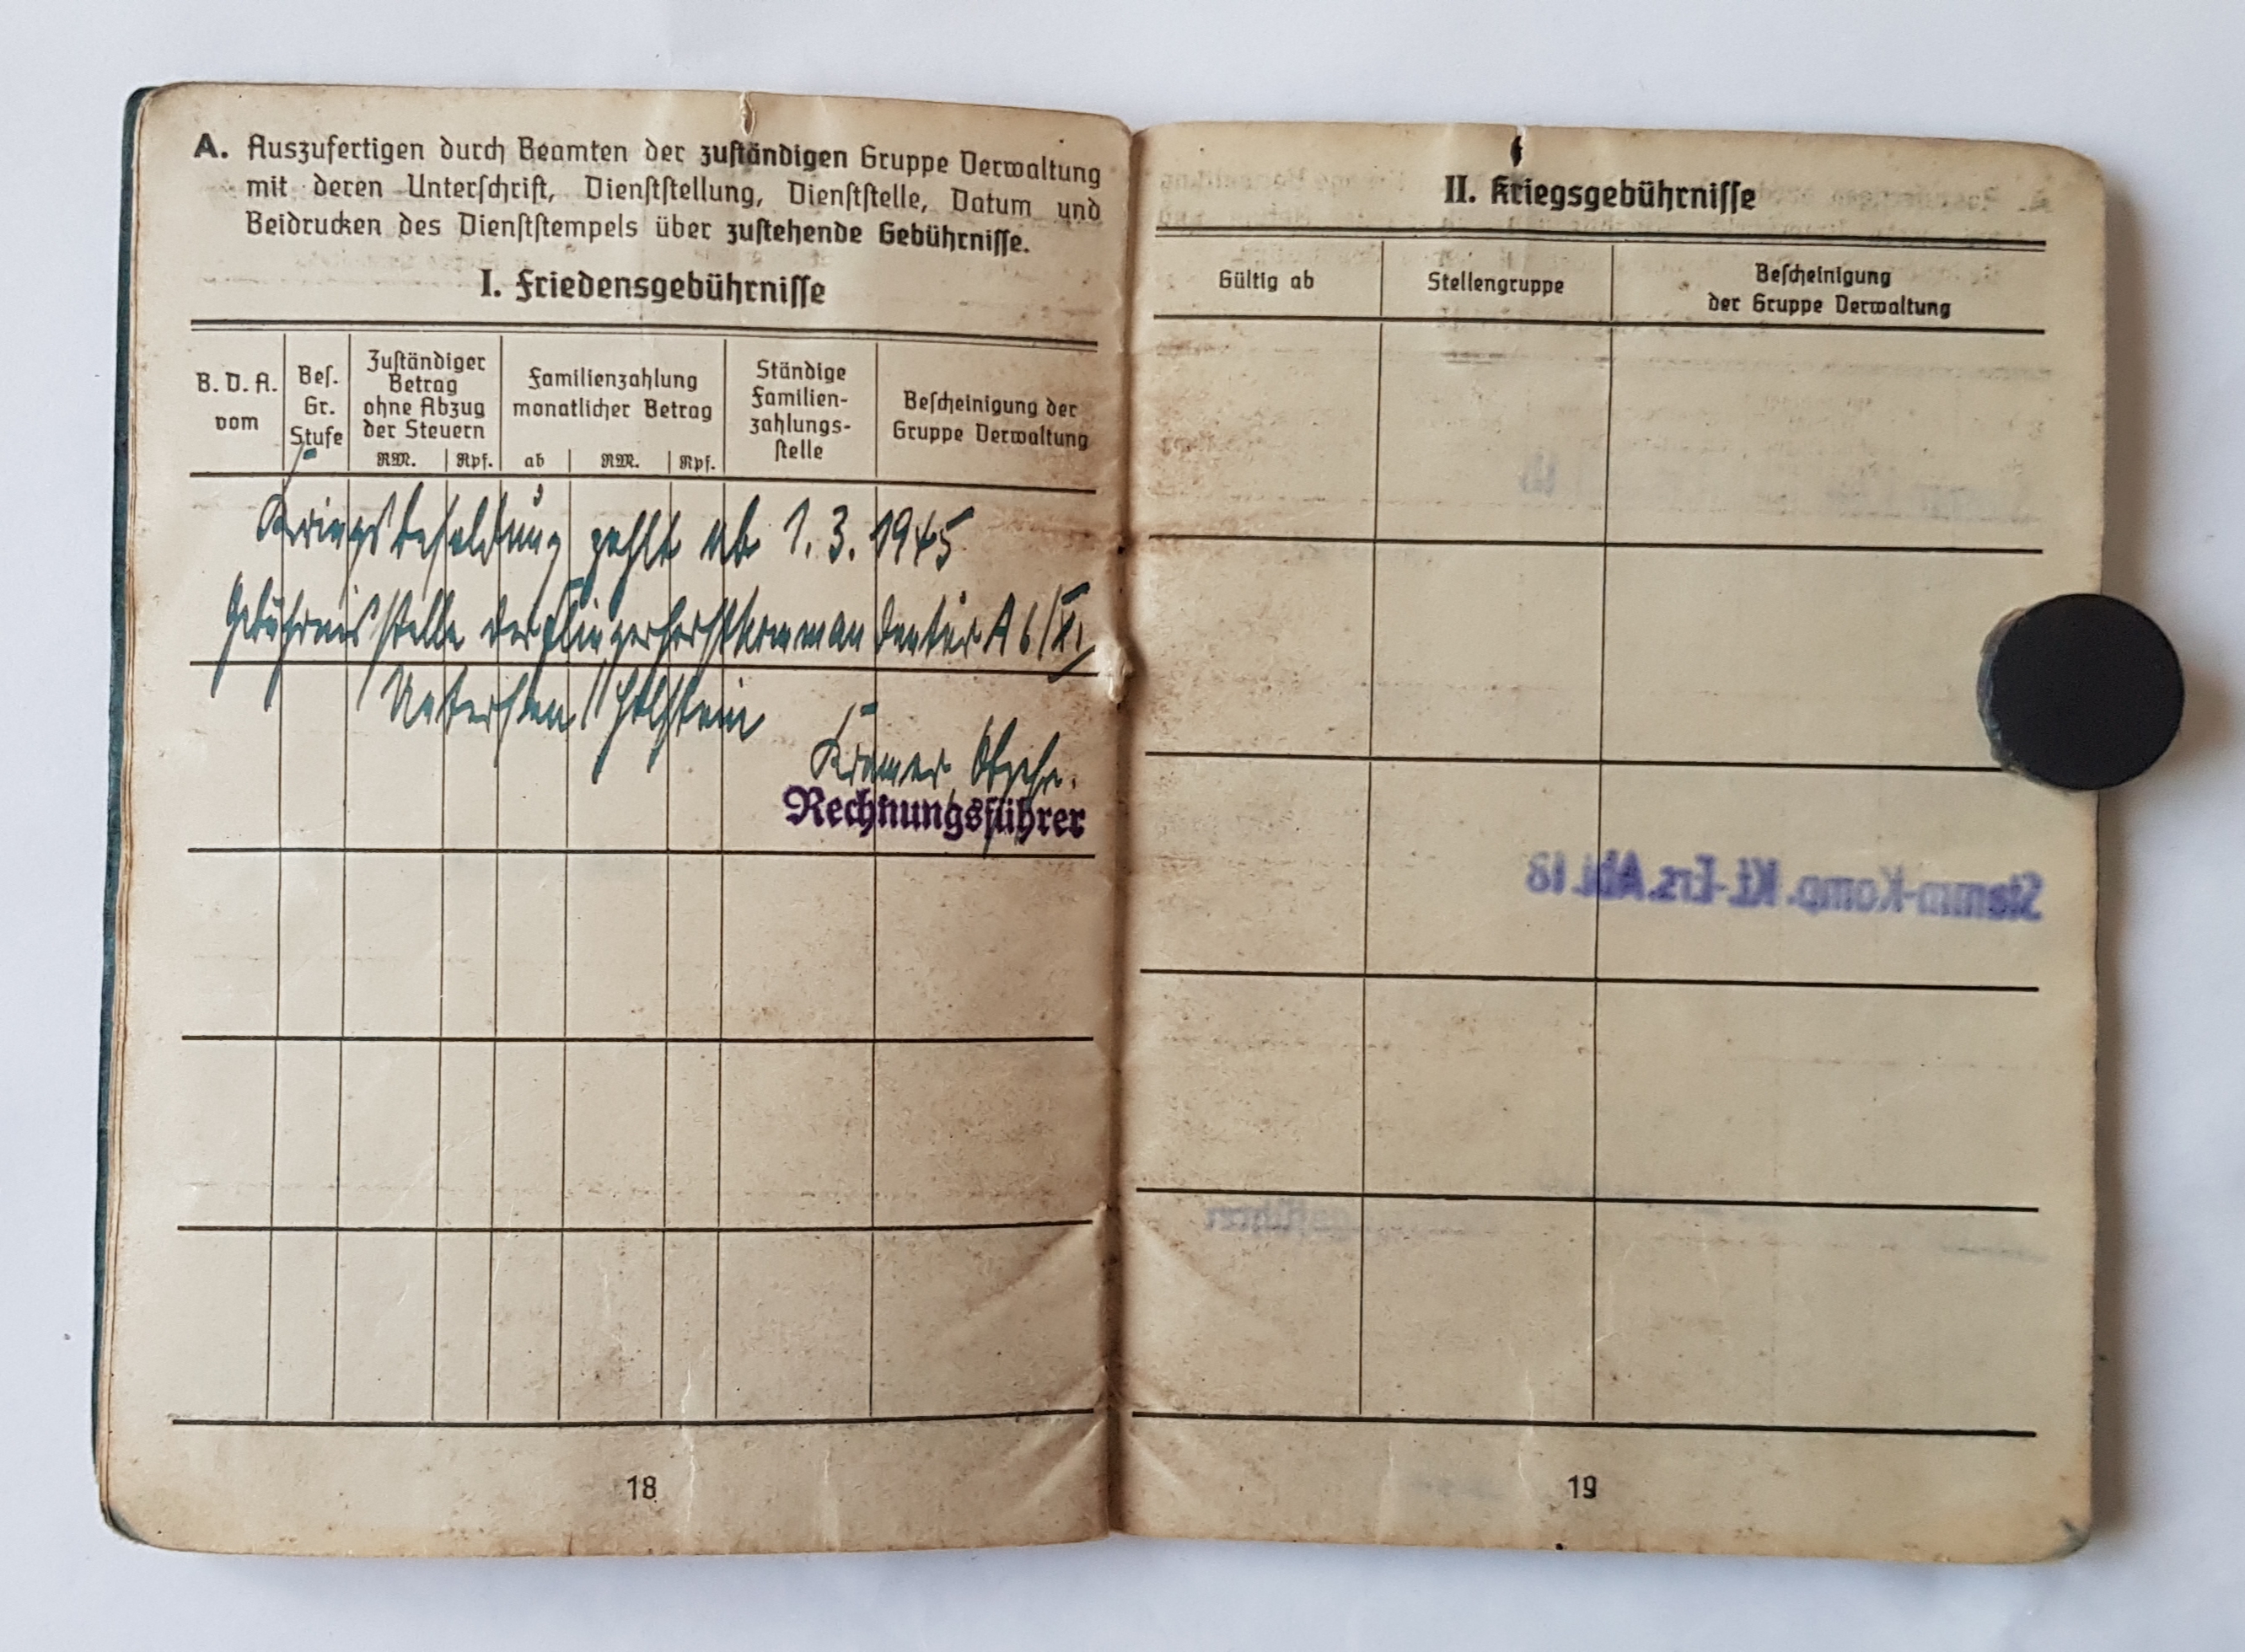 A. Auszufertigen durch Beamten der zuständigen Gruppe Verwaltung
mit deren Unterschrift, Dienststellung, Dienststelle, Datum und
Beidrucken des Dienststempels über zustehende Gebührnisse.
I. Friedensgebührnisse
B. D. A.
vom
Bes.
Gr.
Stufe
Zuständiger
Betrag
ohne Abzug
der Steuern
RM.
Rpf.
Familienzahlung
monatlicher Betrag
ab
RM.
Rpf.
Ständige
Familien-
zahlungs-
stelle
Bescheinigung der
Gruppe Verwaltung
Kriegsbesoldung zahlt ab 1. 3. 1945
Gebührnisstelle der Fliegerhorstkommandantur A 6/XI,
Uetersen/Holstein
Krämer Obgefr.
Rechnungsführer
18
II. Kriegsgebührnisse
Gültig ab
Stellengruppe
Bescheinigung
der Gruppe Verwaltung
Stamm-Komp. Kf.-Ers. Abt. 18
19